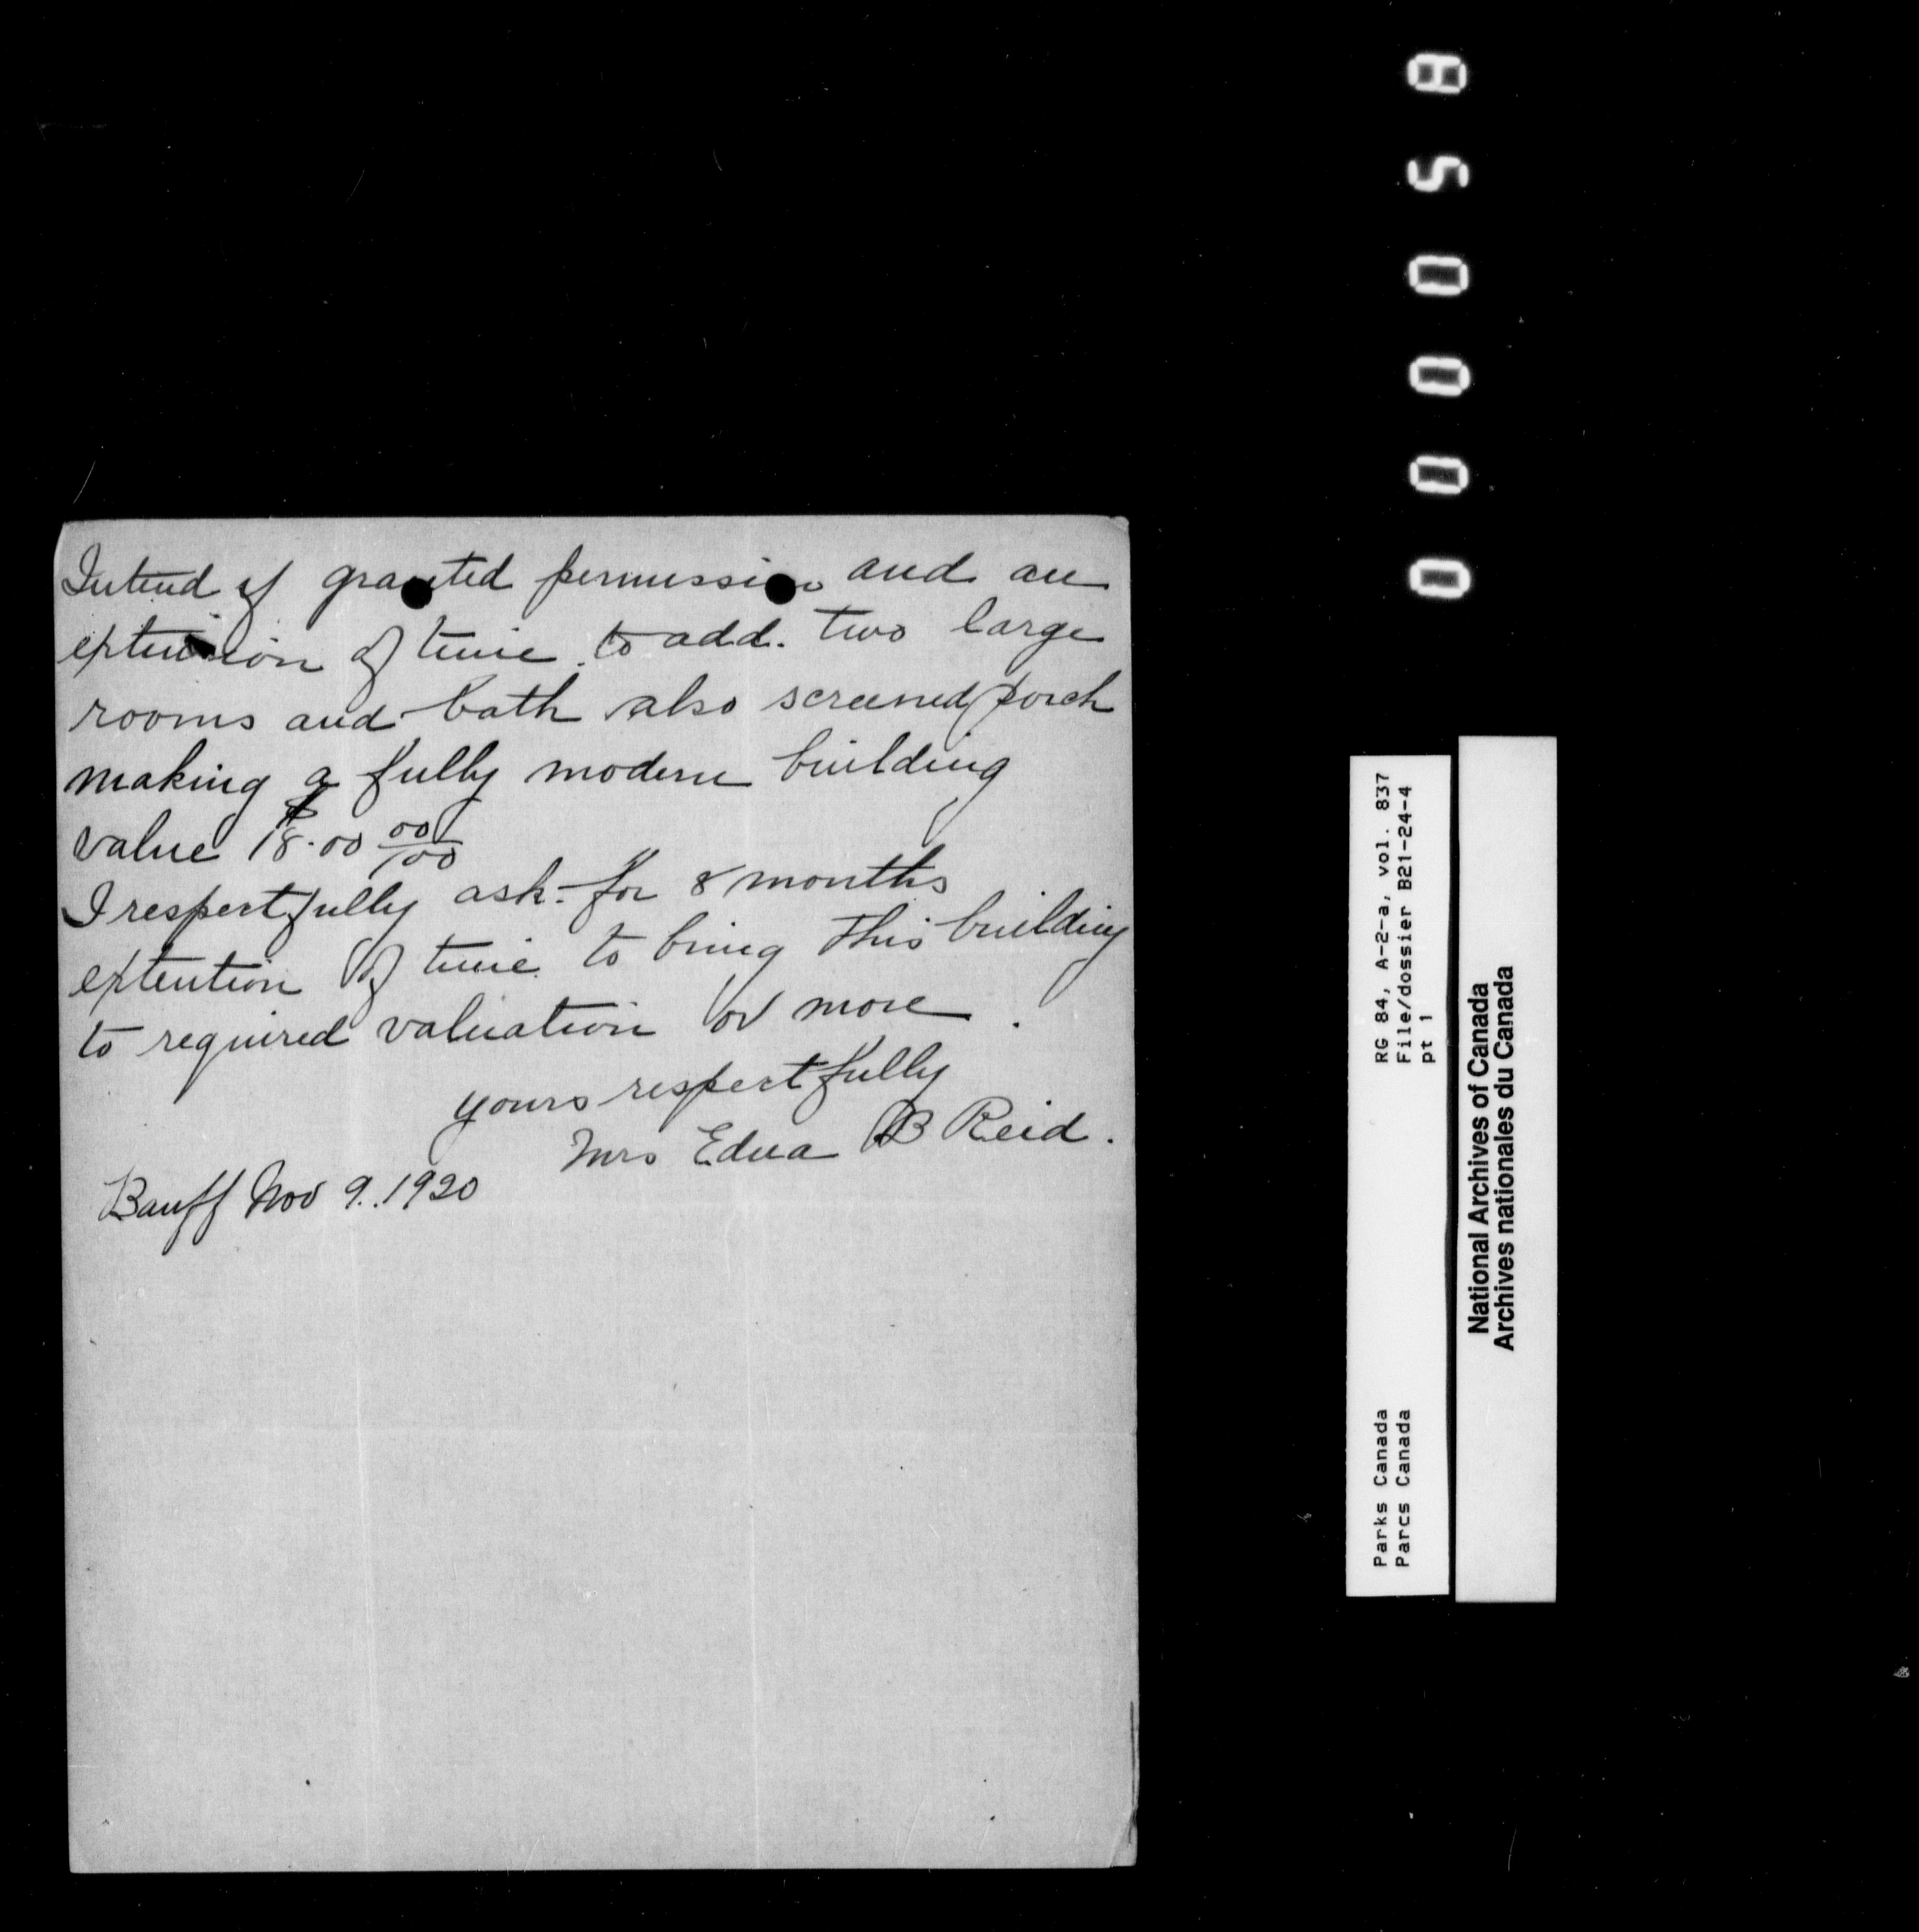 Intend if granted permission and an
extension of time to add. two large
rooms and bath also screened porch
making a fully modern building
value $18.00 00/100
I respectfully ask for 8 months
extention of time to bring this building
to required valuation or more.
yours respectfully
Mrs Edna B Reid.
Banff Nov 9. 1920
000058
RG 84, A-2-a, vol. 837
File/dossier B21-24-4
pt 1
Parks Canada
Parcs Canada
National Archives of Canada
Archives nationales du Canada